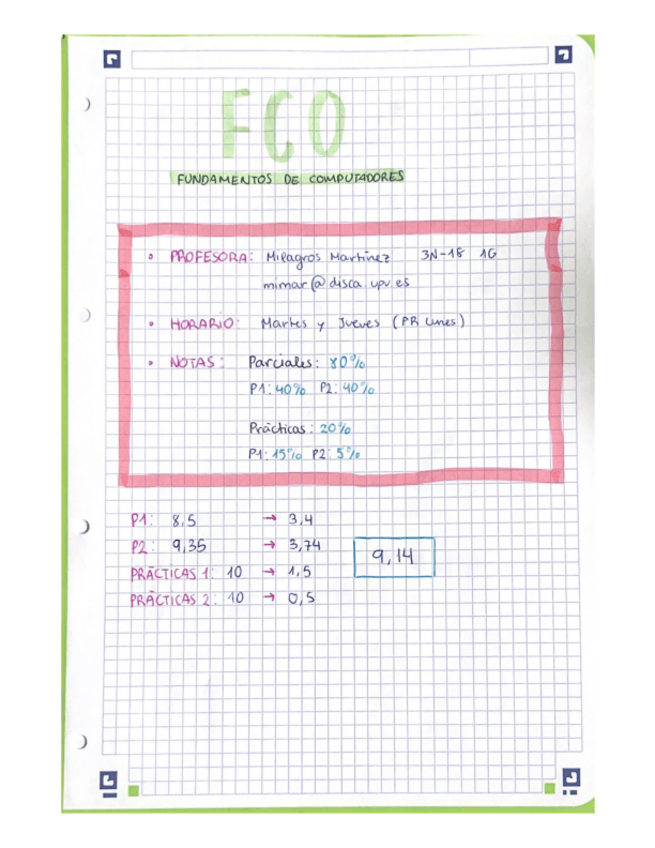 FCO
FUNDAMENTOS DE COMPUTADORES
• PROFESORA: Milagros Martínez 3N-18 1G
mimar@disca.upv.es
• HORARIO: Martes y Jueves (PR Lunes)
• NOTAS: Parciales: 80%
P1: 40% P2: 40%
Prácticas: 20%
P1: 15% P2: 5%
P1: 8,5 → 3,4
P2: 9,35 → 3,74
9,14
PRÁCTICAS 1: 10 → 1,5
PRÁCTICAS 2: 10 → 0,5